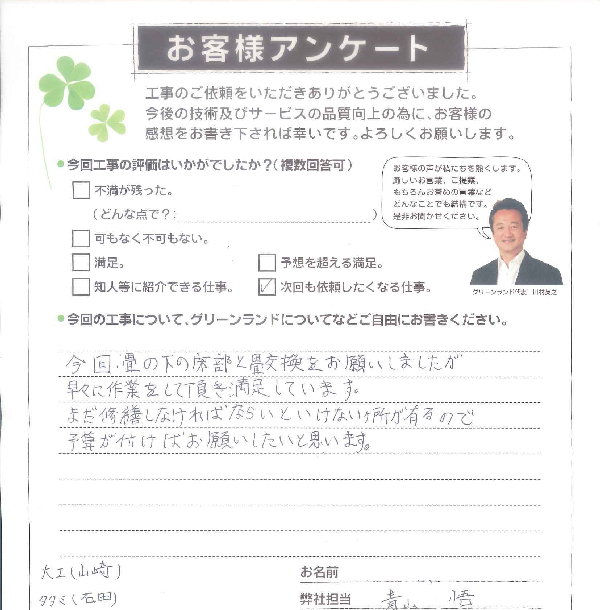 お客様アンケート
工事のご依頼をいただきありがとうございました。
今後の技術及びサービスの品質向上の為に、お客様の
感想をお書き下されば幸いです。よろしくお願いします。
今回工事の評価はいかがでしたか？（複数回答可）
不満が残った。
（どんな点で？：　）
可もなく不可もない。
満足。
予想を超える満足。
知人等に紹介できる仕事。
次回も依頼したくなる仕事。
お客様の声が私たちを熱くします。
厳しいお言葉、ご提案、
もちろんお褒めの言葉など
どんなことでも結構です。
是非お聞かせください。
グリーンランド代表
今回の工事について、グリーンランドについてなどご自由にお書きください。
今回、畳の下の床部と畳交換をお願いしましたが
早々に作業をして頂き満足しています。
まだ修繕しなければならいといけないヶ所が有るので
予算が付けばお願いしたいと思います。
大工(山崎)
タタミ(石田)
お名前
弊社担当
青山 悟